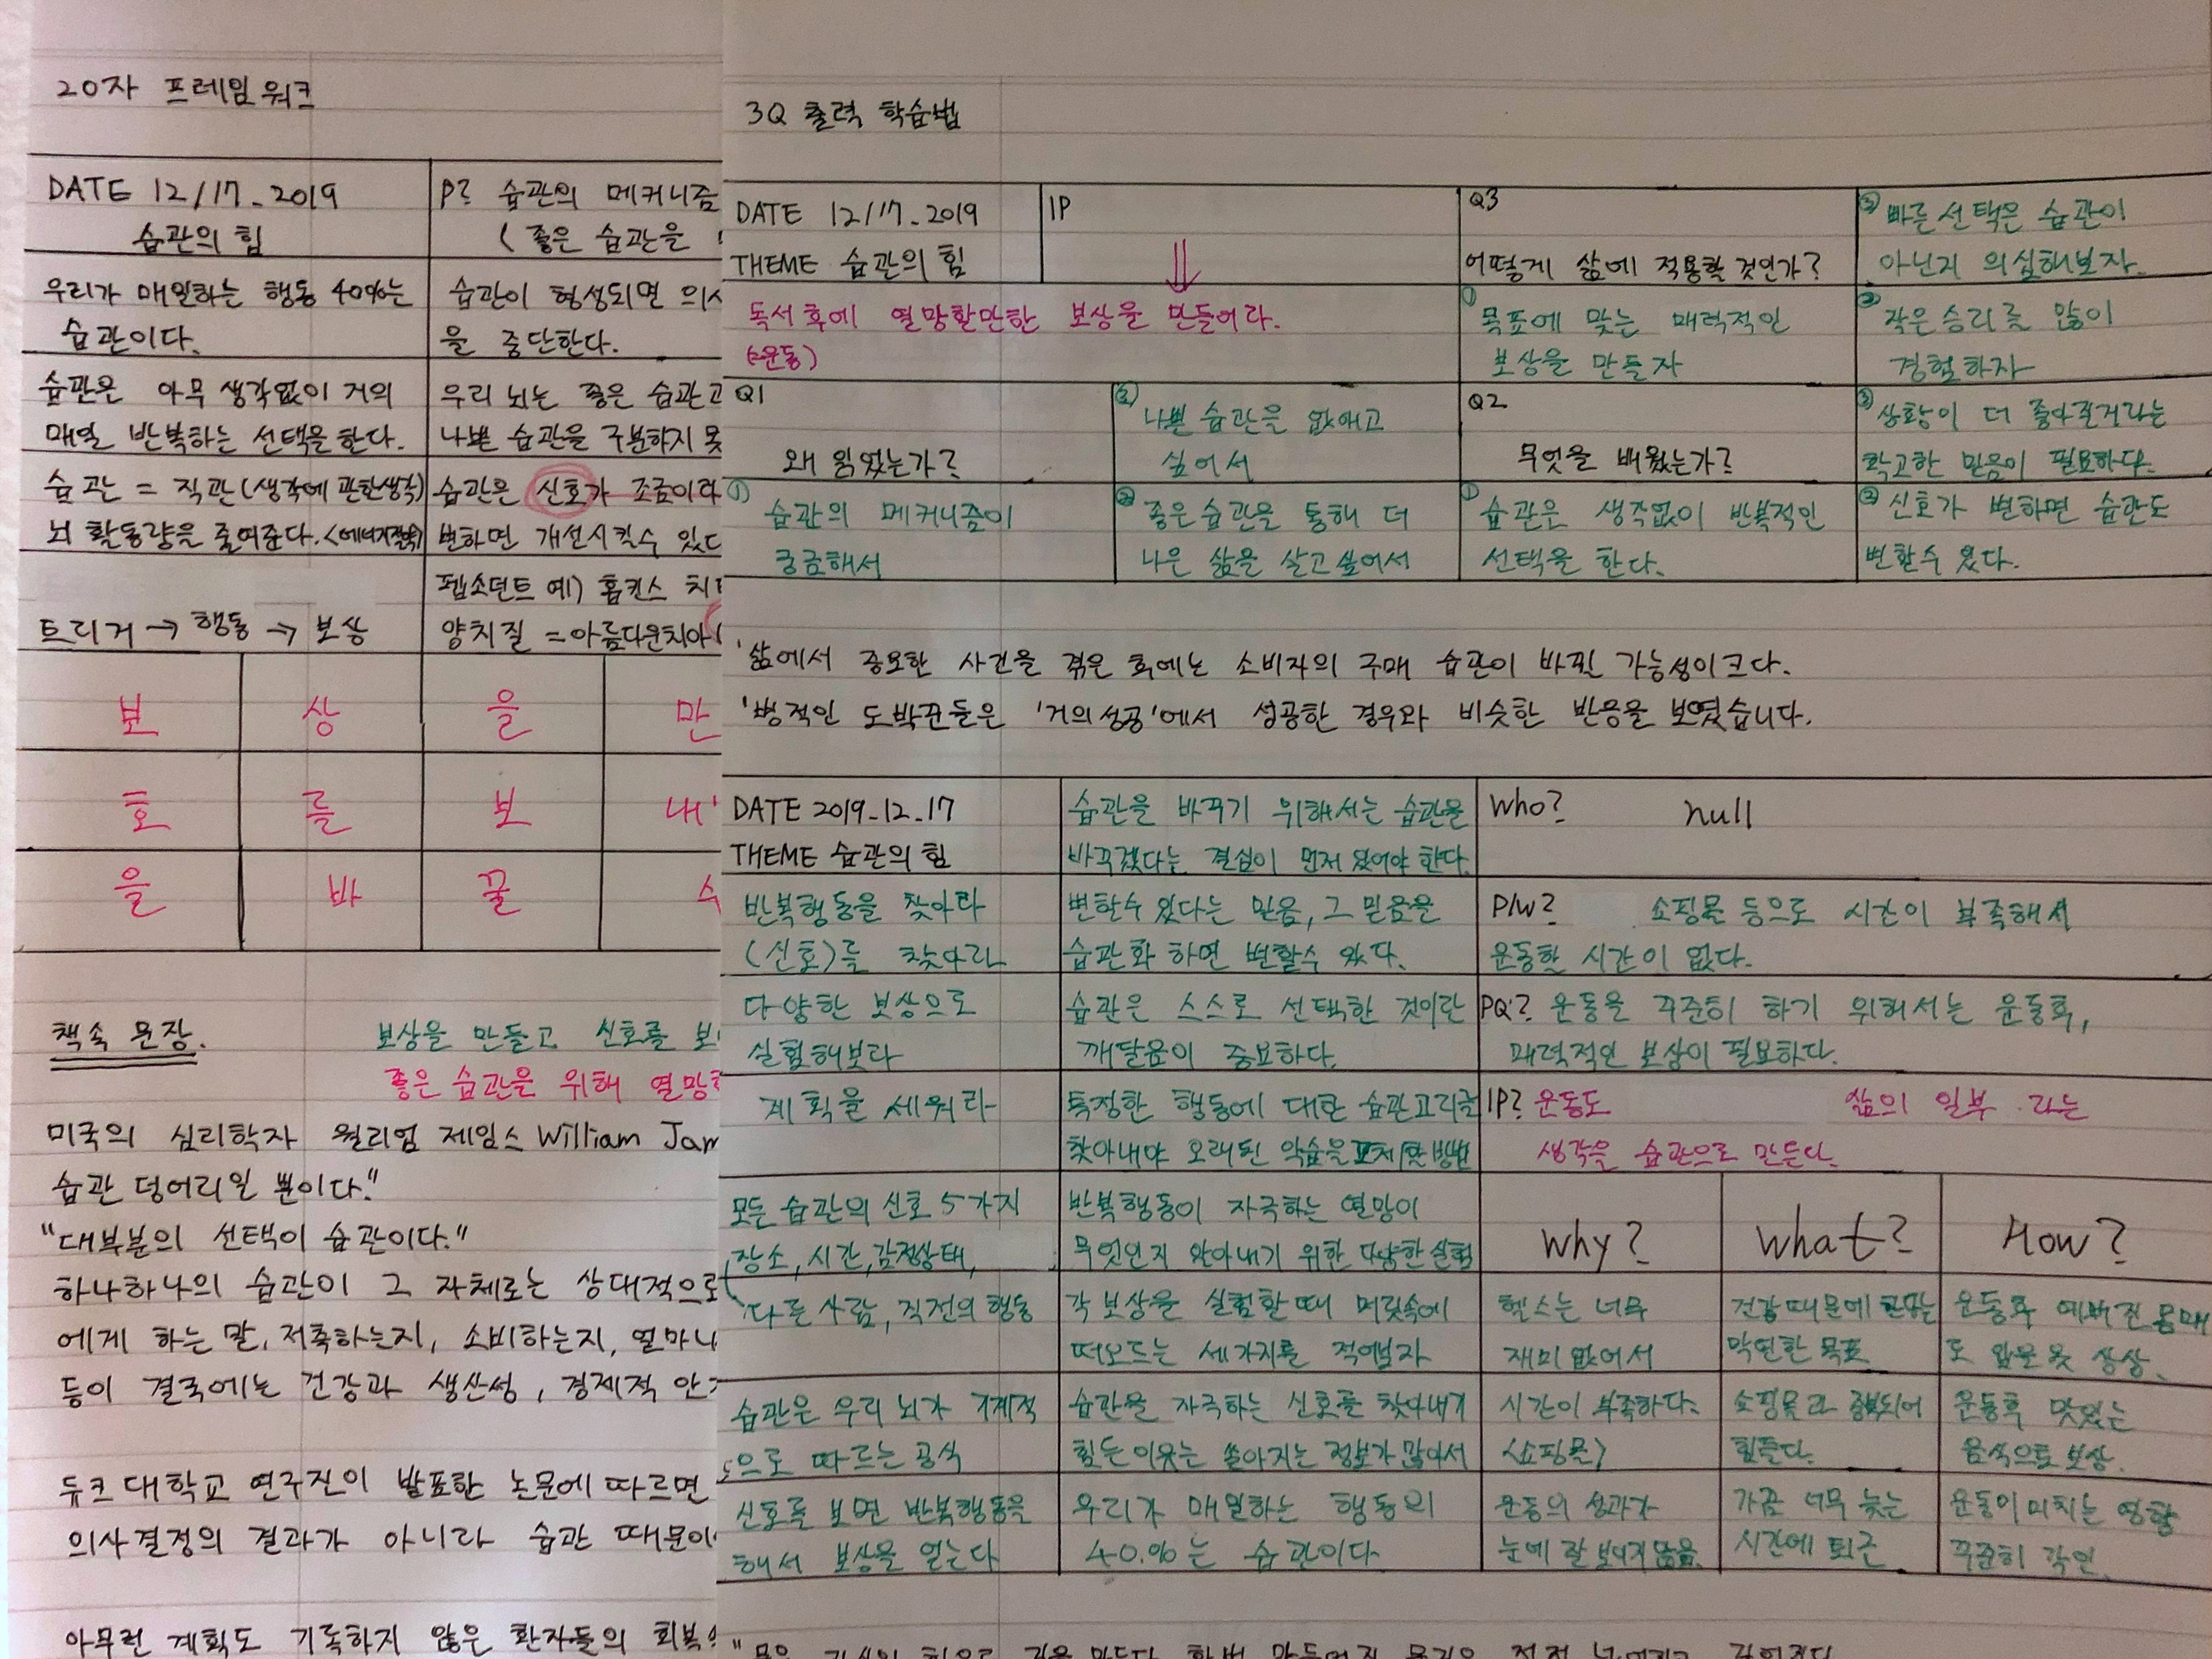 20자 프레임워크
DATE 12/17_2019
습관의 힘
P? 습관의 메커니즘
(좋은 습관을
우리가 매일하는 행동 40%는
습관이다.
습관이 형성되면 의사
을 중단한다.
습관은 아무 생각없이 거의
매일 반복하는 선택을 한다.
우리 뇌는 좋은 습관과
나쁜 습관을 구분하지 못
습관 = 직관(생각에 관한생각)
뇌 활동량을 줄여준다.<에너지절약>
습관은 신호가 조금이라
변하면 개선시킬수 있다
트리거 → 행동 → 보상
펩소던트 예) 홉킨스 치
양치질 =아름다운치아
보 상 을 만
호 를 보 내
을 바 꿀 수
책속 문장.
보상을 만들고 신호를 보
좋은 습관을 위해 열망
미국의 심리학자 윌리엄 제임스 William Jam
습관 덩어리일 뿐이다."
"대부분의 선택이 습관이다."
하나하나의 습관이 그 자체로는 상대적으로
에게 하는 말, 저축하는지, 소비하는지, 얼마나
등이 결국에는 건강과 생산성, 경제적 안
듀크 대학교 연구진이 발표한 논문에 따르면
의사결정의 결과가 아니라 습관 때문이
아무런 계획도 기록하지 않은 환자들의 회복
3Q 출력 학습법
DATE 12/17_2019
THEME 습관의 힘
1P
독서후에 열망할만한 보상을 만들어라.
(운동)
Q3
어떻게 삶에 적용할 것인가?
③ 빠른선택은 습관이
아닌지 의심해보자.
① 목표에 맞는 매력적인
보상을 만들자
② 작은승리를 많이
경험하자
Q1
왜 읽었는가?
③ 나쁜 습관을 없애고
싶어서
Q2
무엇을 배웠는가?
③ 상황이 더 좋아질거라는
확고한 믿음이 필요하다.
① 습관의 메커니즘이
궁금해서
② 좋은습관을 통해 더
나은 삶을 살고싶어서
① 습관은 생각없이 반복적인
선택을 한다.
② 신호가 변하면 습관도
변할수 있다.
'삶에서 중요한 사건을 겪은 후에는 소비자의 구매 습관이 바뀔 가능성이크다.
'병적인 도박꾼들은 '거의성공'에서 성공한 경우와 비슷한 반응을 보였습니다.
DATE 2019_12_17
THEME 습관의 힘
습관을 바꾸기 위해서는 습관을
바꾸겠다는 결심이 먼저 있어야 한다.
Who? null
반복행동을 찾아라
(신호)를 찾아라
변할수 있다는 믿음, 그 믿음을
습관화 하면 변할수 있다.
P/w? 쇼핑몰 등으로 시간이 부족해서
운동할 시간이 없다.
다양한 보상으로
실험해보라
습관은 스스로 선택한 것이란
깨달음이 중요하다.
PQ? 운동을 꾸준히 하기 위해서는 운동후,
매력적인 보상이 필요하다.
계획을 세워라
특정한 행동에 대한 습관고리를
찾아내야 오래된 악습을
1P? 운동도 삶의 일부 라는
생각을 습관으로 만든다.
모든 습관의 신호 5가지
장소, 시간, 감정상태,
다른 사람, 직전의 행동
반복행동이 자극하는 열망이
무엇인지 알아내기 위한 다양한 실험
각 보상을 실험할때 머릿속에
떠오르는 세가지를 적어보자
Why? What? How?
헬스는 너무
재미없어서
건강때문에
막연한 목표
운동후 예뻐진 몸매
도 입은옷 상상.
습관은 우리 뇌가 기계적
으로 따르는 공식
습관을 자극하는 신호를 찾아내기
힘든이유는 쏟아지는 정보가 많아서
시간이 부족하다.
<쇼핑몰>
쇼핑몰과 중복되어
힘들다.
운동후 맛있는
음식으로 보상.
신호를 보면 반복행동을
해서 보상을 얻는다
우리가 매일하는 행동의
40%는 습관이다
운동의 성과가
눈에 잘 보이지 않음.
가끔 너무 늦는
시간에 퇴근
운동이 미치는 영향
꾸준히 각인.